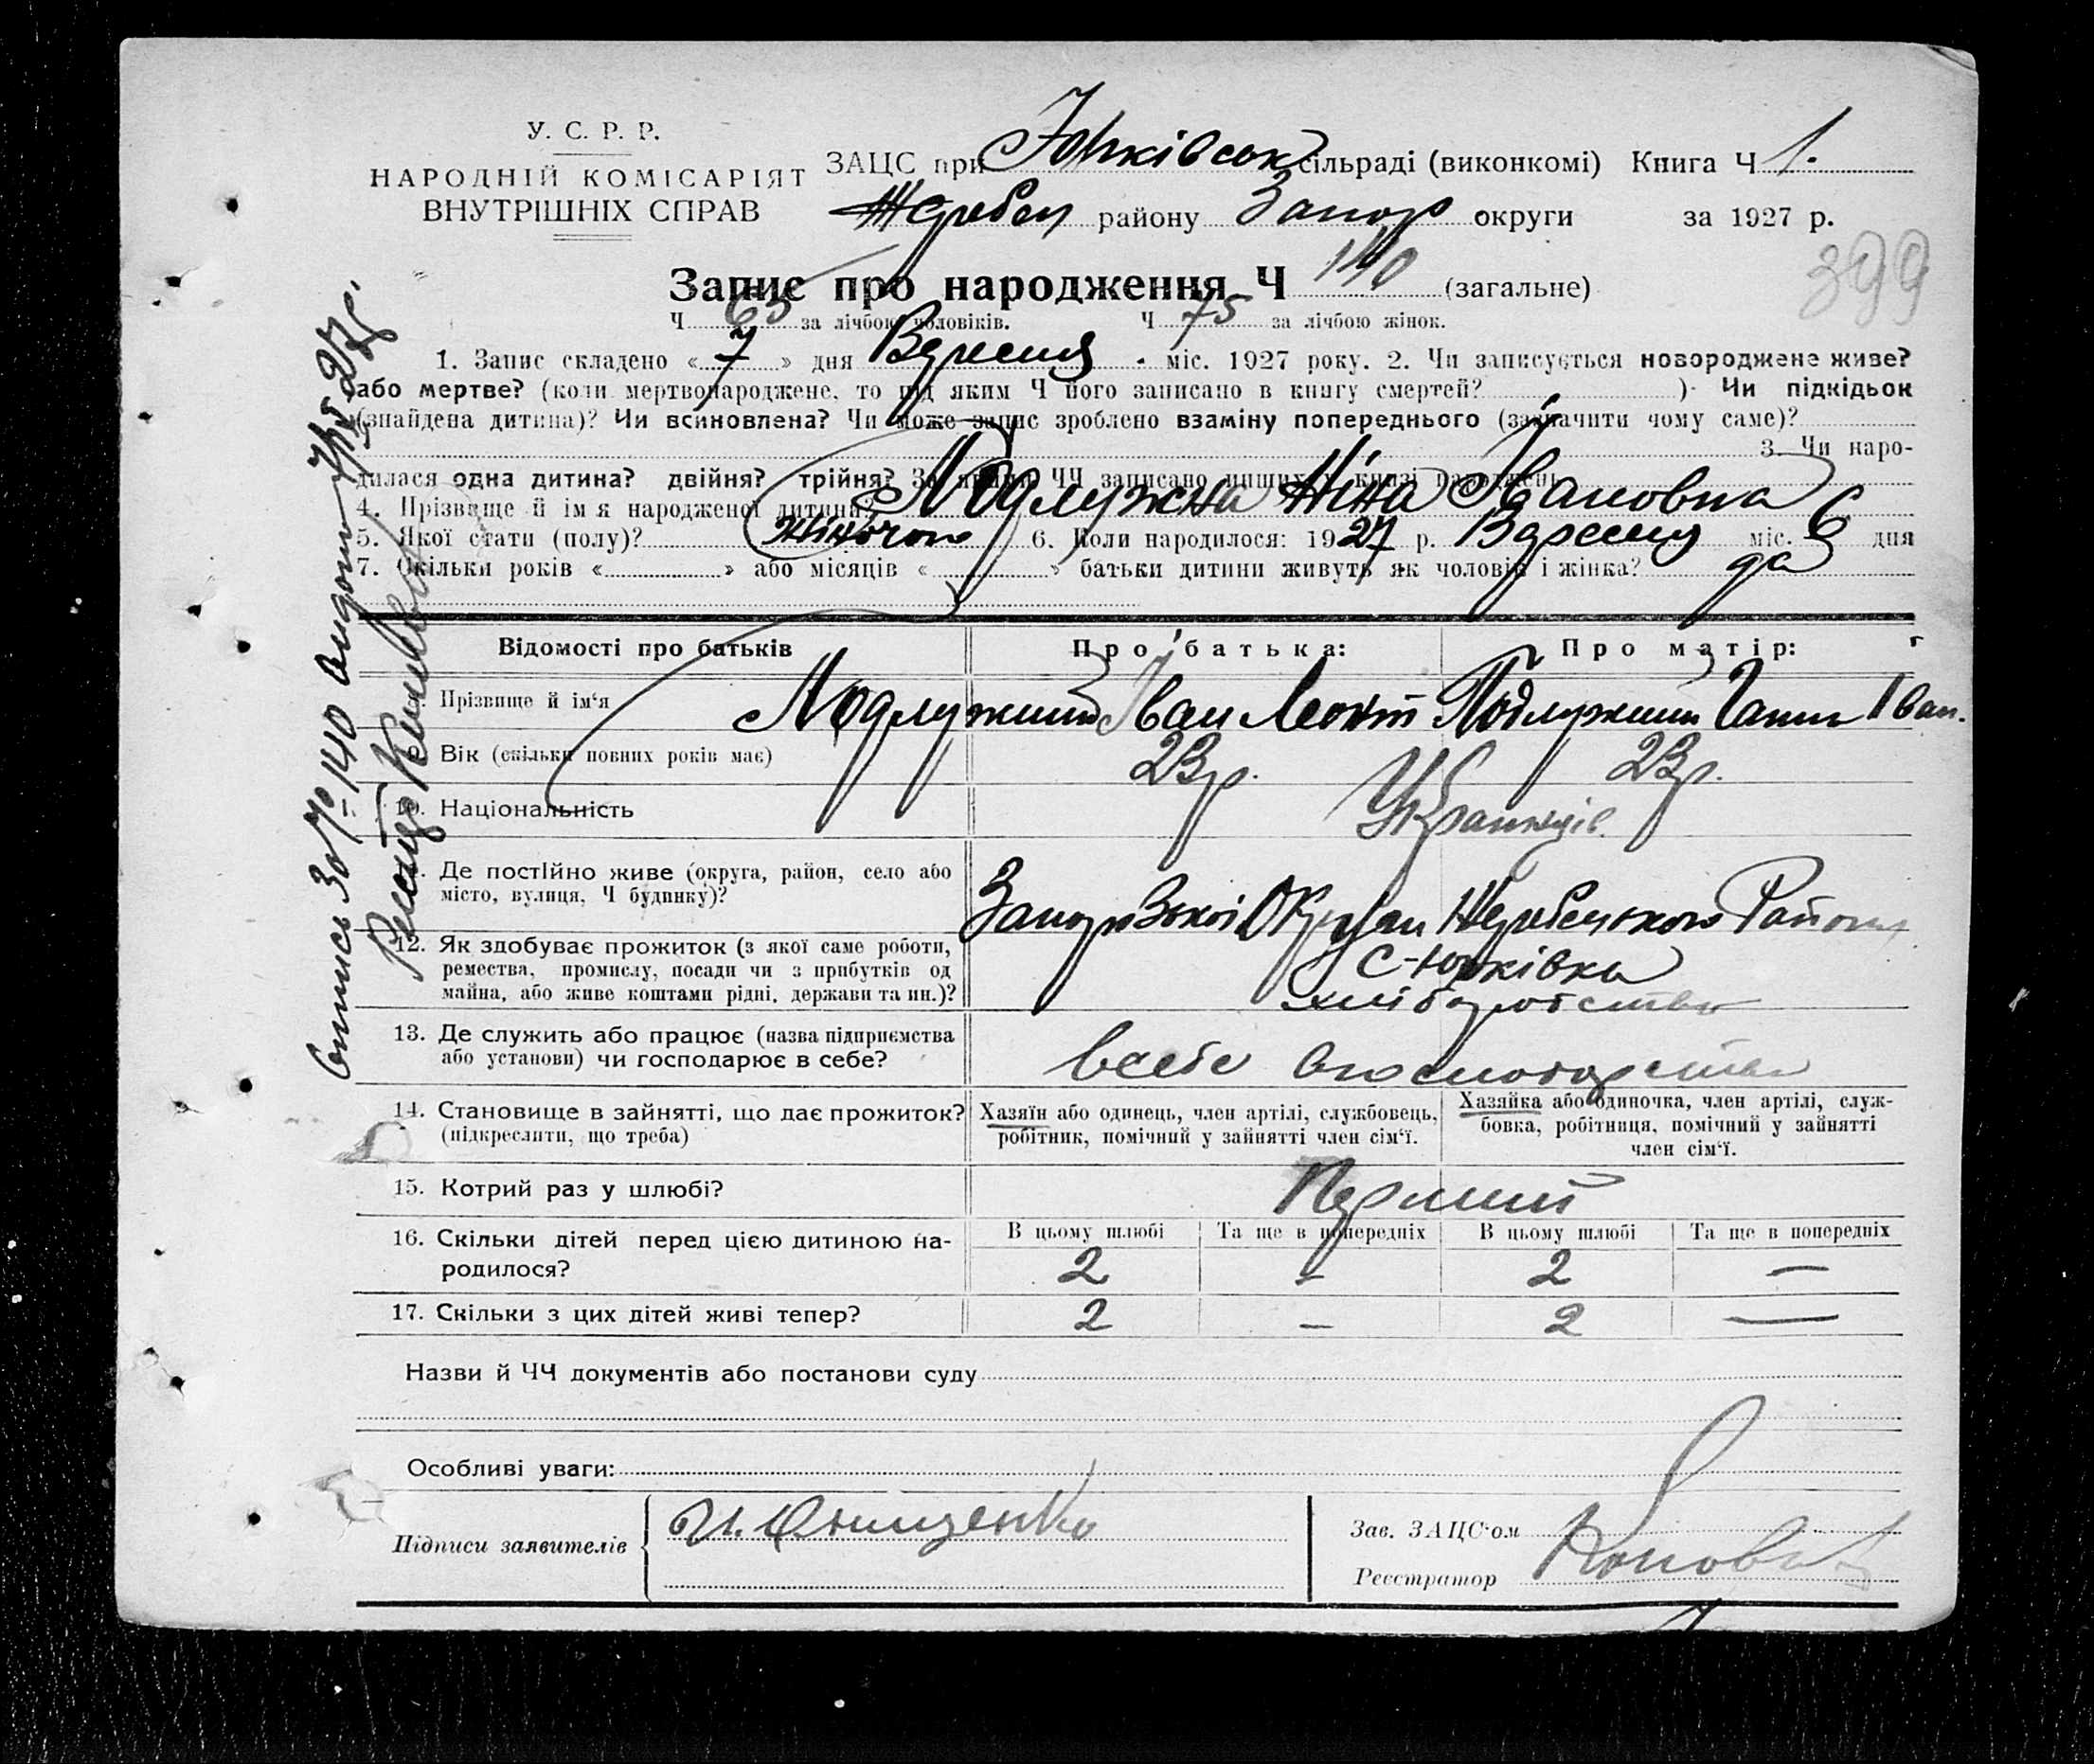 У. С. Р. Р.
НАРОДНІЙ КОМІСАРІЯТ
ВНУТРІШНІХ СПРАВ
ЗАЦС при Юнківськ сільраді (виконкомі) Книга Ч 1.
Жеребец району Запор округи за 1927 р.
399
Запис про народження Ч 140 (загальне)
Ч 65 за лічбою чоловіків. Ч 75 за лічбою жінок.
1. Запис складено « 7 » дня Вересня міс. 1927 року. 2. Чи записується новороджене живе?
або мертве? (коли мертвонароджене, то під яким Ч його записано в книгу смертей? ) Чи підкідьок
(знайдена дитина)? Чи всиновлена? Чи може запис зроблено взаміну попереднього (зазначити чому саме)?
3. Чи наро-
дилася одна дитина? двійня? трійня? За якими ЧЧ записано инших у книзі народжень
4. Прізвище й ім'я народженої дитини? Подлужна Ніна Івановна
5. Якої стати (полу)? Жіночого 6. Коли народилося: 1927 р. Вересня міс. 6 дня
7. Скільки років « » або місяців « » батьки дитини живуть як чоловік і жінка? да
Відомості про батьків Про батька: Про матір:
Прізвище й ім'я Подлужний Іван Леонт Подлужний Ганна Іван.
9. Вік (скільки повних років має) 23 р. 23 р.
10. Національність Українців
11. Де постійно живе (округа, район, село або
місто, вулиця, Ч будинку)?
Запорізької Округи Жеребецького Району
12. Як здобуває прожиток (з якої саме роботи,
ремества, промислу, посади чи з прибутків од
майна, або живе коштами рідні, держави та ин.)?
С-Юрківка
хліборобство
13. Де служить або працює (назва підприємства
або установи) чи господарює в себе?
всебе
14. Становище в зайнятті, що дає прожиток?
(підкреслити, що треба)
Хазяїн або одинець, член артілі, службовець,
робітник, помічний у зайнятті член сім'ї.
Хазяйка або одиночка, член артілі, служ-
бовка, робітниця, помічний у зайнятті
член сім'ї.
15. Котрий раз у шлюбі? Перший
В цьому шлюбі Та ще в попередніх В цьому шлюбі Та ще в попередніх
16. Скільки дітей перед цією дитиною на-
родилося?
2 – 2 —
17. Скільки з цих дітей живі тепер? 2 – 2 —
Назви й ЧЧ документів або постанови суду
Особливі уваги:
Підписи заявителів И. Онищенко
Зав. ЗАЦС'ом
Реєстратор